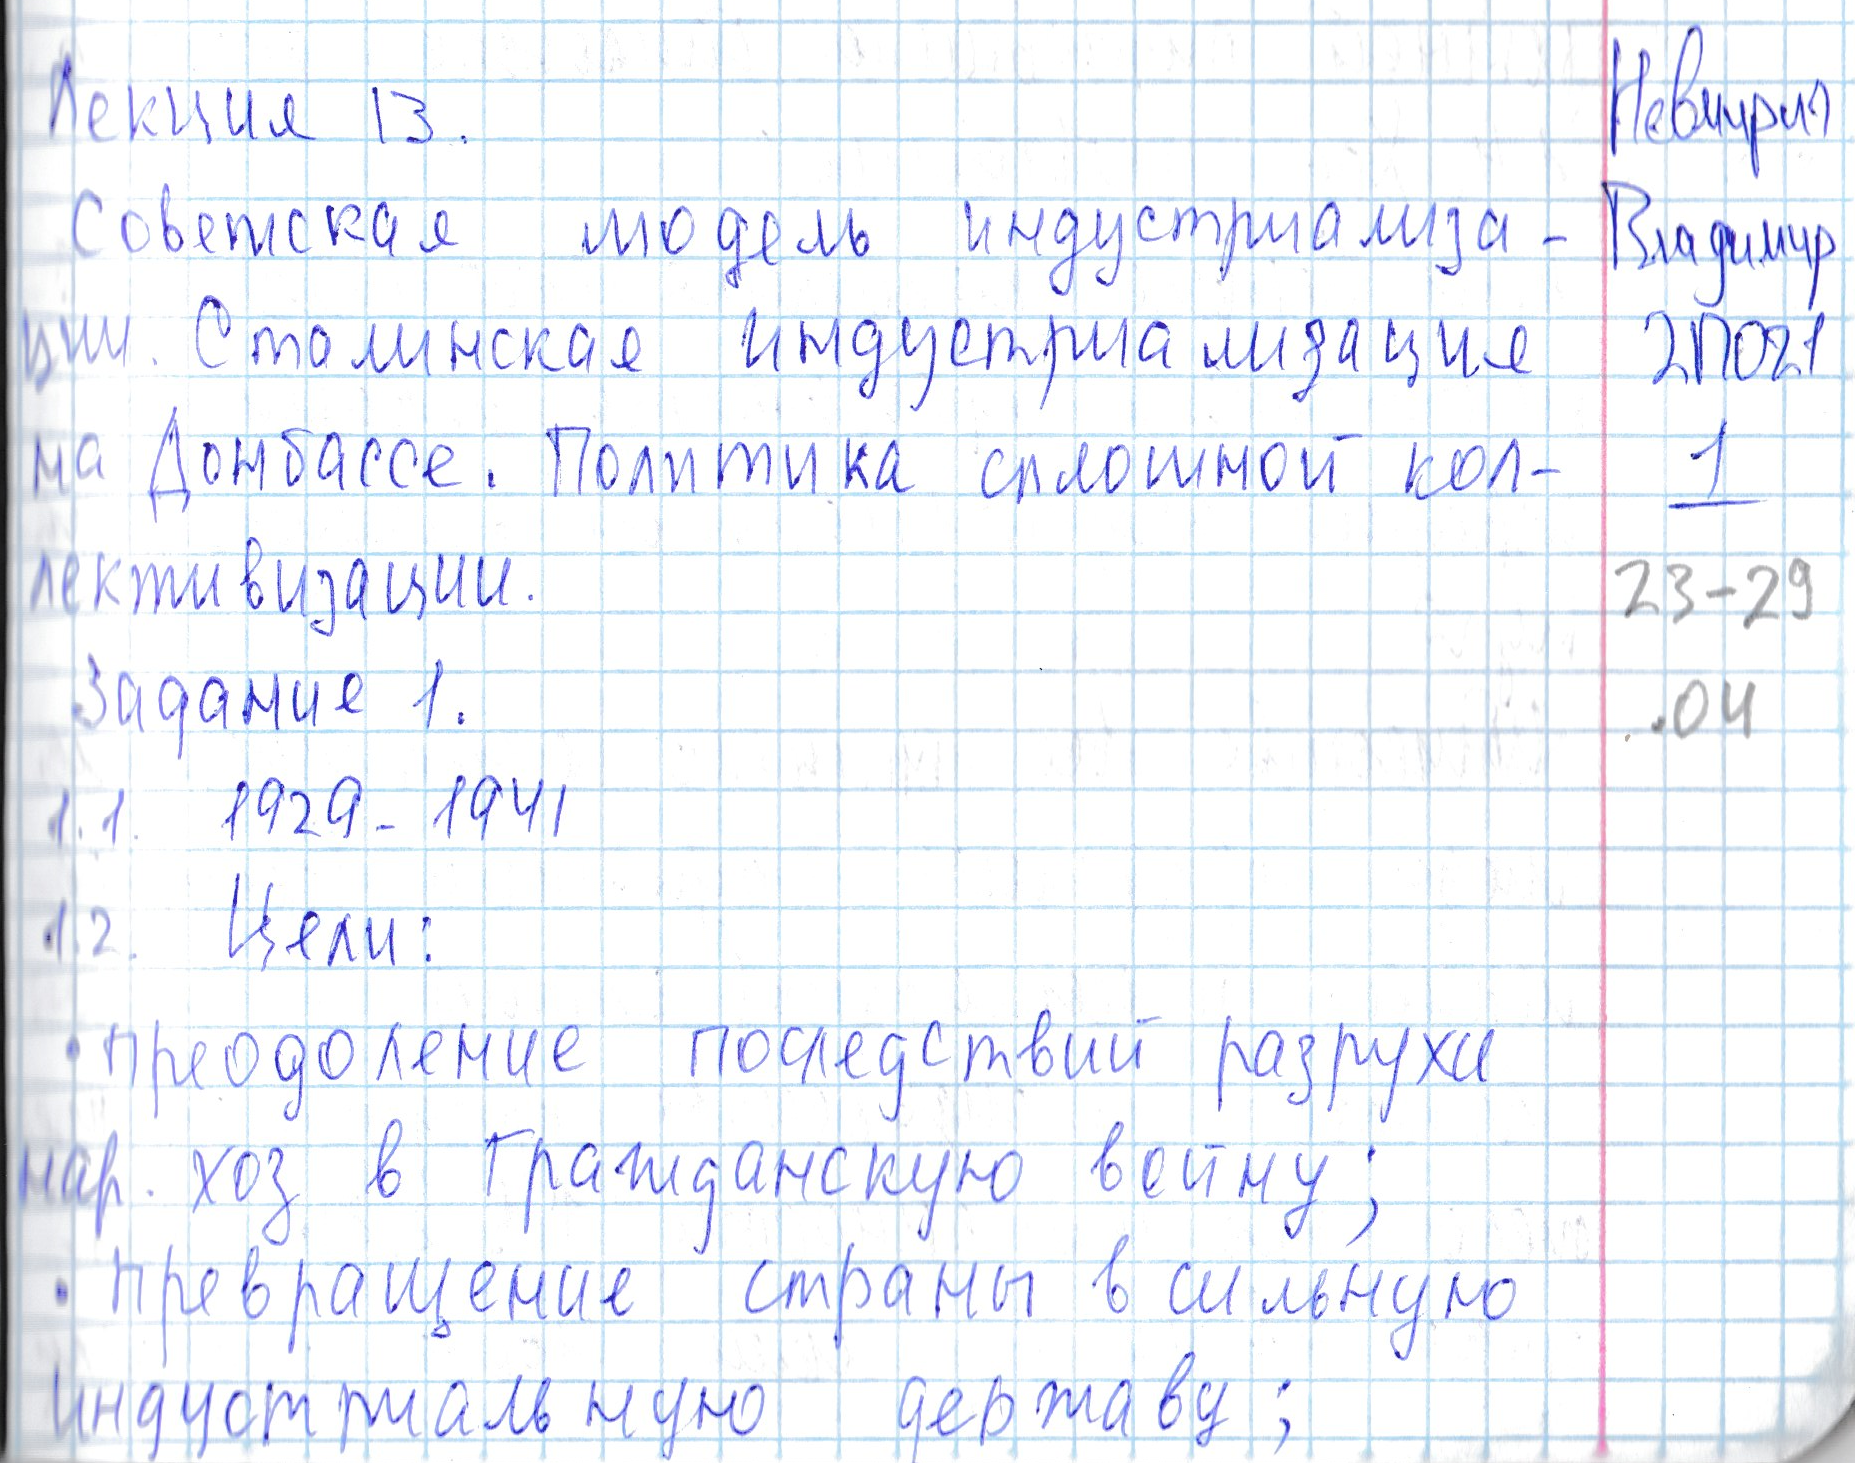 Лекция 13.
Советская модель индустриализа-
ции. Сталинская индустриализация
на Донбассе. Политика сплошной кол-
лективизации.
Задание 1.
1.1. 1929-1941
1.2. Цели:
• преодоление последствий разрухи
нар. хоз в Гражданскую войну;
• превращение страны в сильную
индустриальную державу;
Владимир
2ПО21
1
23-29
.04